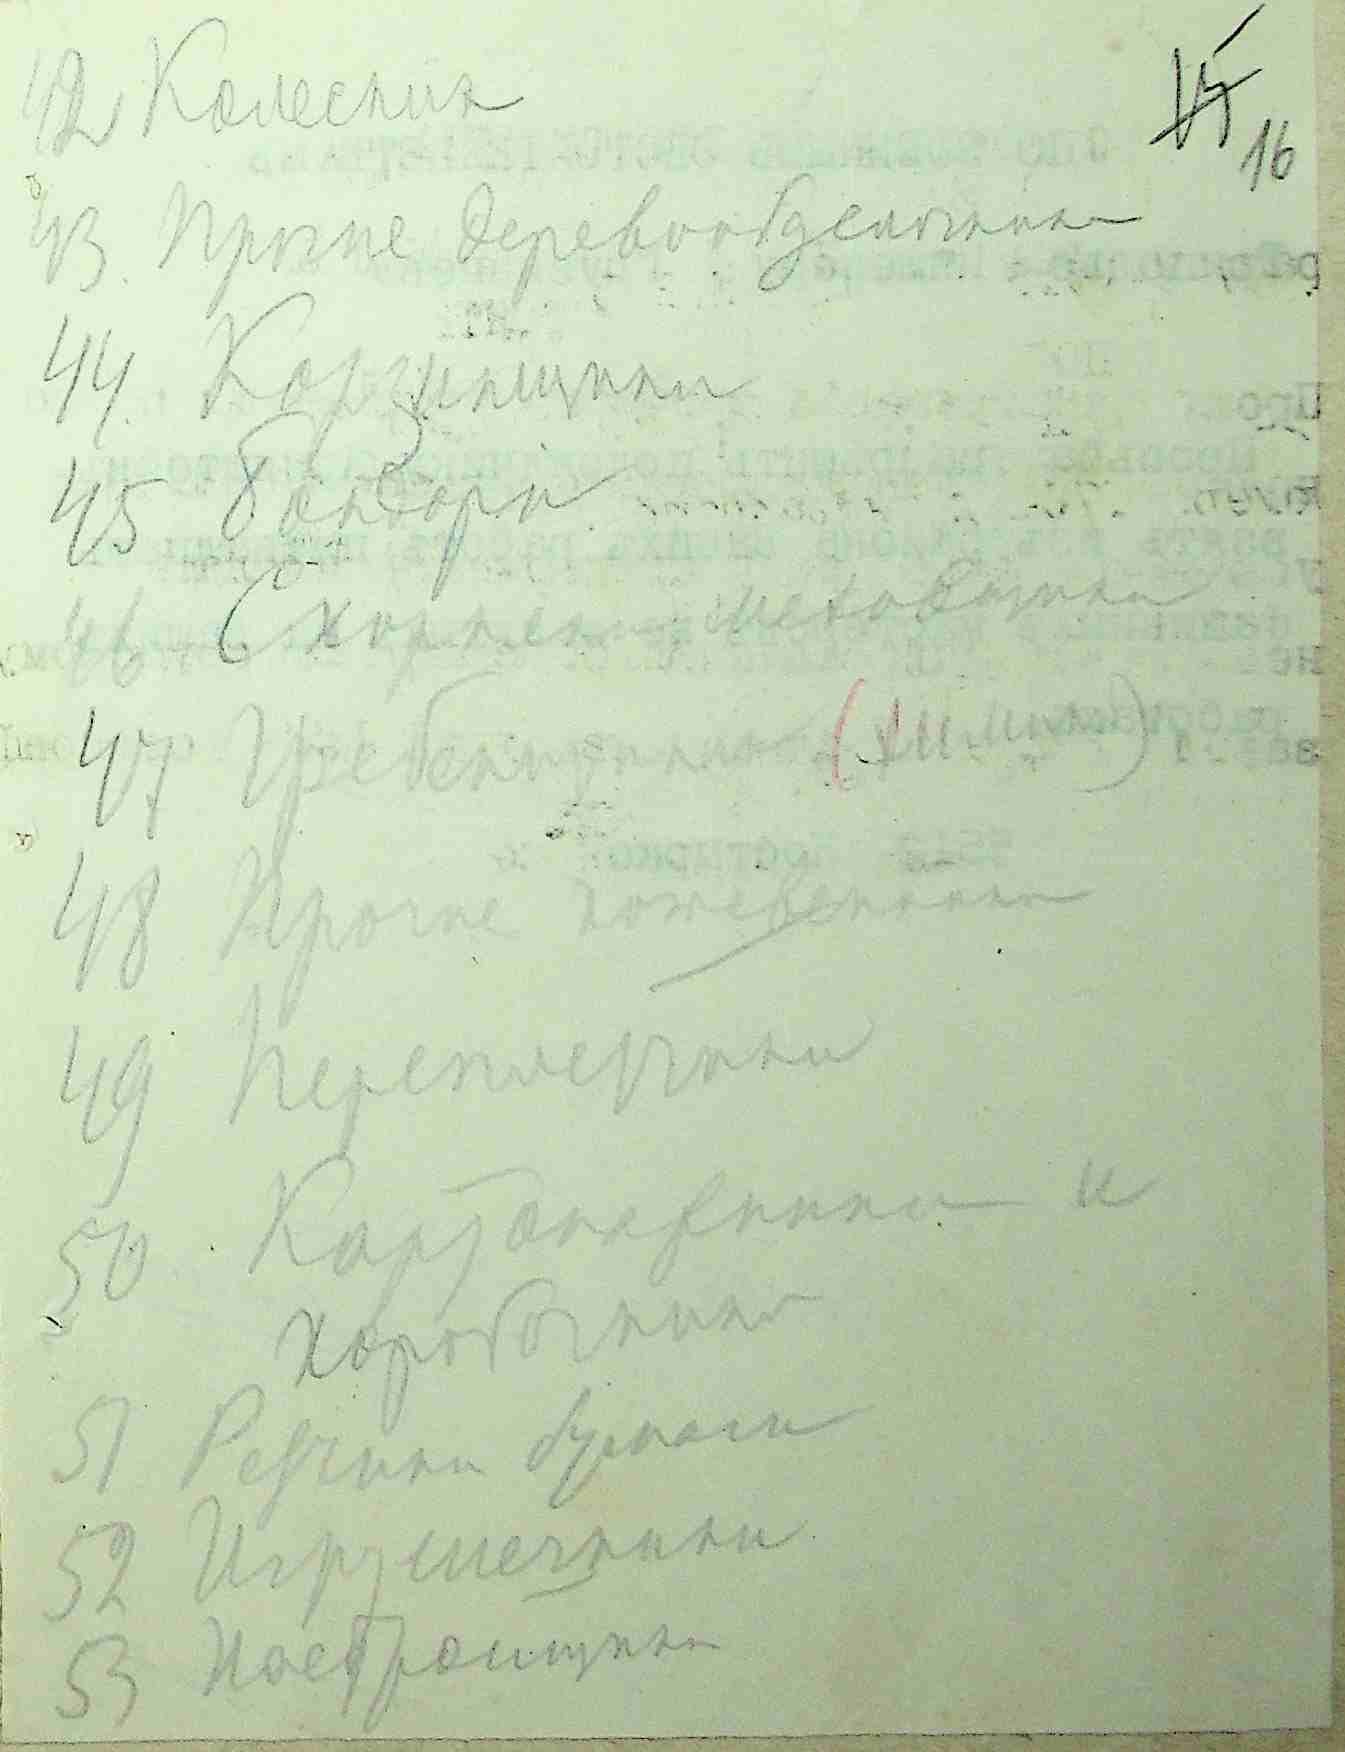 15
16
42 Колесник
43. Прочие деревообделочники
44. Корзинщики
45 Бондари
46 Скорняки-меховщики
47 Гребенщики (химики)
48 Прочие кожевенники
49 Переплетчики
50 Картонажники и
коробочники
51 Резчики бумаги
52 Игрушечники
53